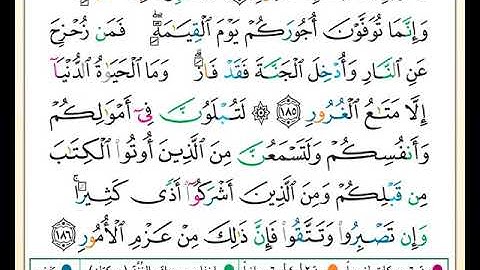 وَإِنَّمَا تُوَفَّوْنَ أُجُورَكُمْ يَوْمَ الْقِيَامَةِ ۖ فَمَن زُحْزِحَ
عَنِ النَّارِ وَأُدْخِلَ الْجَنَّةَ فَقَدْ فَازَ ۗ وَمَا الْحَيَاةُ الدُّنْيَا
إِلَّا مَتَاعُ الْغُرُورِ ﴿١٨٥﴾ ۞ لَتُبْلَوُنَّ فِي أَمْوَالِكُمْ
وَأَنفُسِكُمْ وَلَتَسْمَعُنَّ مِنَ الَّذِينَ أُوتُوا الْكِتَابَ
مِن قَبْلِكُمْ وَمِنَ الَّذِينَ أَشْرَكُوا أَذًى كَثِيرًا ۚ
وَإِن تَصْبِرُوا وَتَتَّقُوا فَإِنَّ ذَٰلِكَ مِنْ عَزْمِ الْأُمُورِ ﴿١٨٦﴾